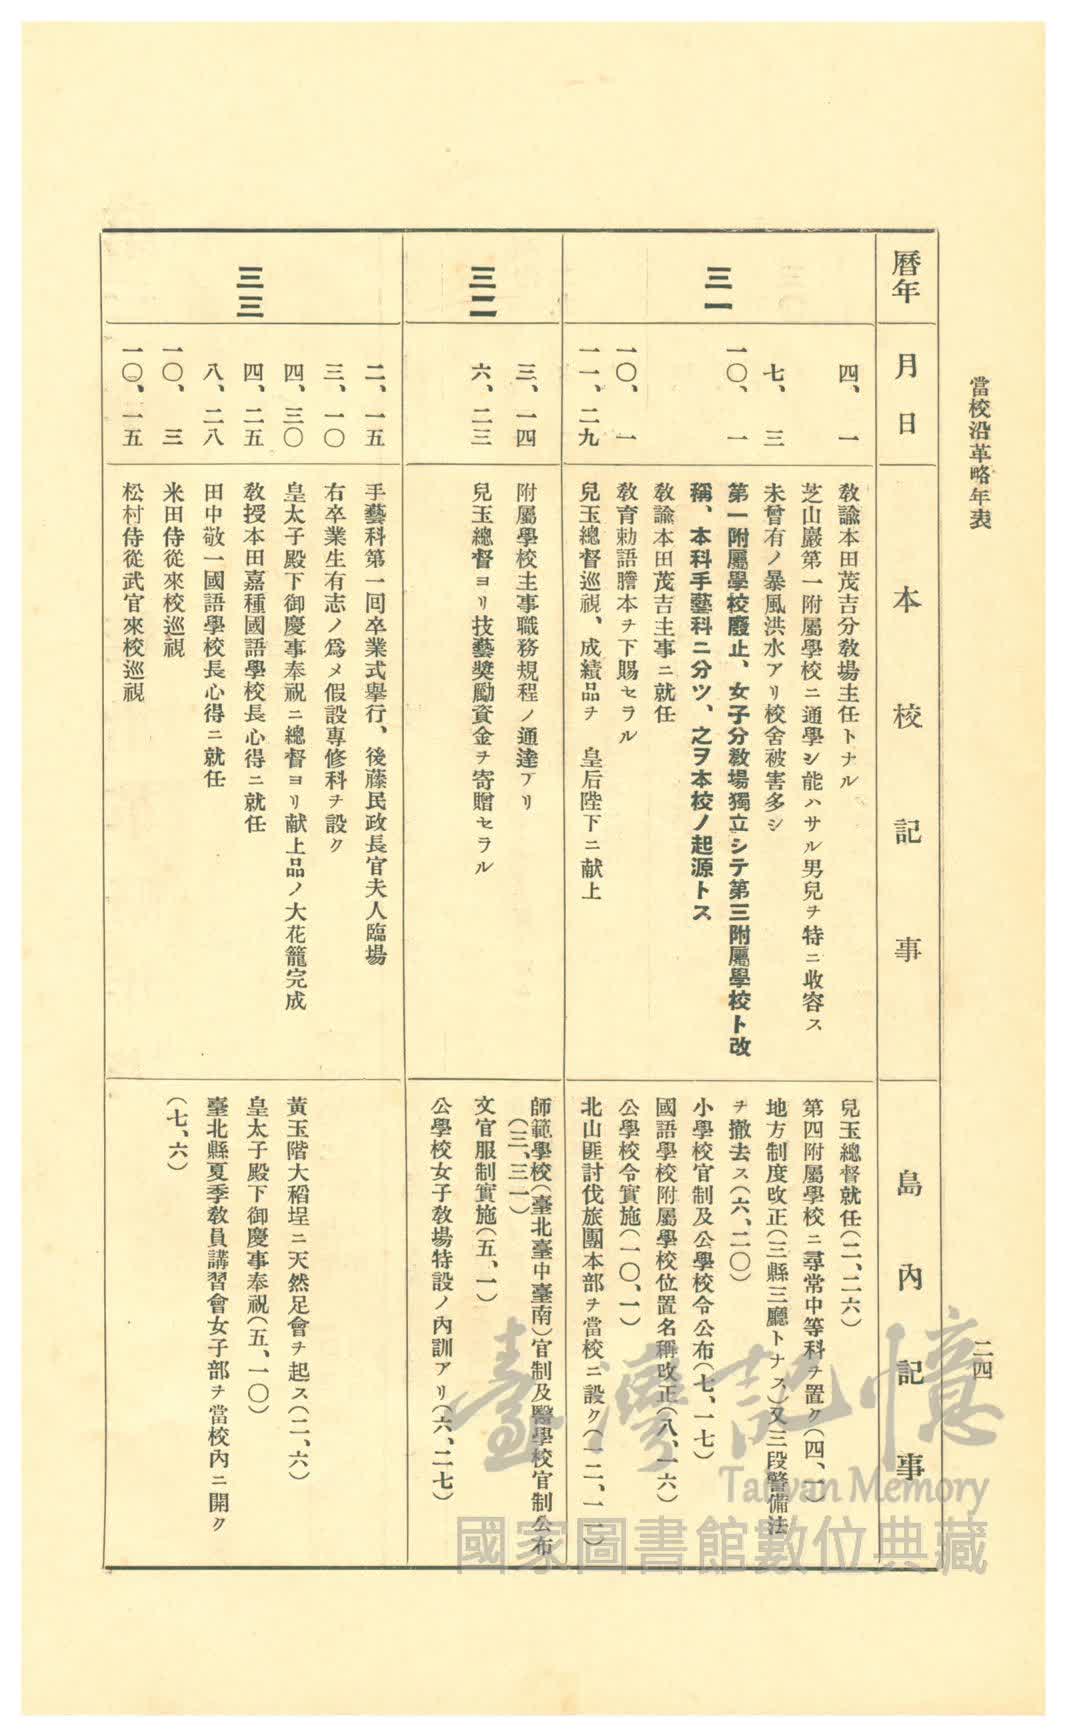 當校沿革略年表
二四
曆年
月日
本校記事
島內記事
三一
四、一
教諭本田茂吉分教場主任トナル
芝山巖第一附屬學校ニ通學シ能ハサル男兒ヲ特ニ收容ス
七、三
未曾有ノ暴風洪水アリ校舍被害多シ
一〇、一
第一附屬學校廢止、女子分教場獨立シテ第三附屬學校ト改
稱、本科手藝科ニ分ツ、之ヲ本校ノ起源トス
教諭本田茂吉主事ニ就任
一〇、一
教育勅語謄本ヲ下賜セラル
一一、二九
兒玉總督巡視、成績品ヲ　皇后陛下ニ献上
兒玉總督就任(二、二六)
第四附屬學校ニ尋常中等科ヲ置ク(四、一)
地方制度改正(三縣三廳トナス)又三段警備法
ヲ撤去ス(六、二〇)
小學校官制及公學校令公布(七、一七)
國語學校附屬學校位置名稱改正(八、一六)
公學校令實施(一〇、一)
北山匪討伐旅團本部ヲ當校ニ設ク(一二、一一)
三二
三、一四
附屬學校主事職務規程ノ通達アリ
六、二三
兒玉總督ヨリ技藝奬勵資金ヲ寄贈セラル
師範學校(臺北臺中臺南)官制及醫學校官制公布
(三、三一)
文官服制實施(五、一)
公學校女子教場特設ノ內訓アリ(六、二七)
三三
二、一五
手藝科第一回卒業式擧行、後藤民政長官夫人臨場
三、一〇
右卒業生有志ノ爲メ假設專修科ヲ設ク
四、三〇
皇太子殿下御慶事奉祝ニ總督ヨリ献上品ノ大花籠完成
四、二五
教授本田嘉種國語學校長心得ニ就任
八、二八
田中敬一國語學校長心得ニ就任
一〇、三
米田侍從來校巡視
一〇、一五
松村侍從武官來校巡視
黃玉階大稻埕ニ天然足會ヲ起ス(二、六)
皇太子殿下御慶事奉祝(五、一〇)
臺北縣夏季教員講習會女子部ヲ當校內ニ開ク
(七、六)
臺灣記憶
Taiwan Memory
國家圖書館數位典藏